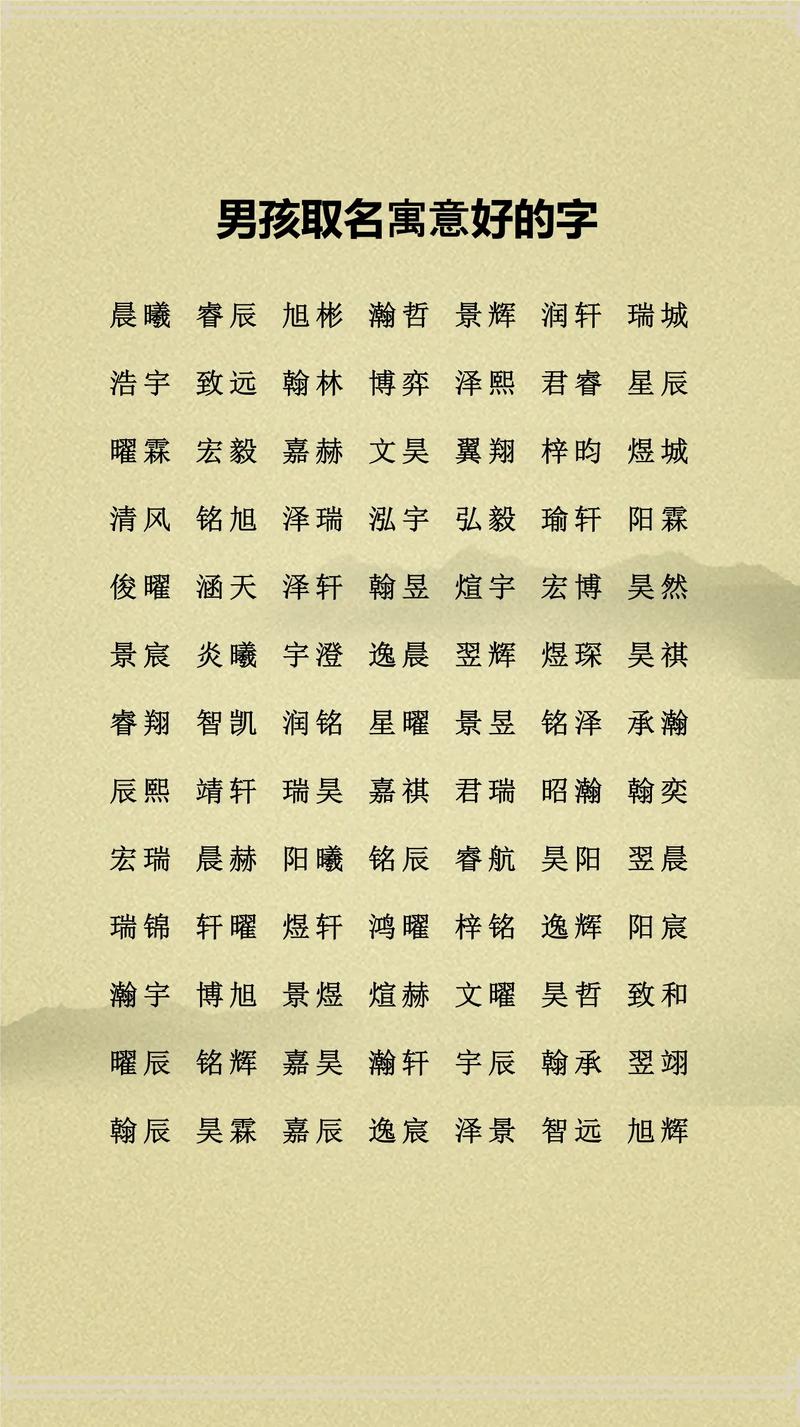 男孩取名寓意好的字
晨曦 睿辰 旭彬 瀚哲 景辉 润轩 瑞城
浩宇 致远 翰林 博弈 泽熙 君睿 星辰
曜霖 宏毅 嘉赫 文昊 翼翔 梓昀 煜城
清风 铭旭 泽瑞 泓宇 弘毅 瑜轩 阳霖
俊曜 涵天 泽轩 翰昱 煊宇 宏博 昊然
景宸 炎曦 宇澄 逸晨 翌辉 煜琛 昊祺
睿翔 智凯 润铭 星曜 景昱 铭泽 承瀚
辰熙 靖轩 瑞昊 嘉祺 君瑞 昭瀚 翰奕
宏瑞 晨赫 阳曦 铭辰 睿航 昊阳 翌晨
瑞锦 轩曜 煜轩 鸿曜 梓铭 逸辉 阳宸
瀚宇 博旭 景煜 煊赫 文曜 昊哲 致和
曜辰 铭辉 嘉昊 瀚轩 宇辰 翰承 翌翊
翰辰 昊霖 嘉辰 逸宸 泽景 智远 旭辉